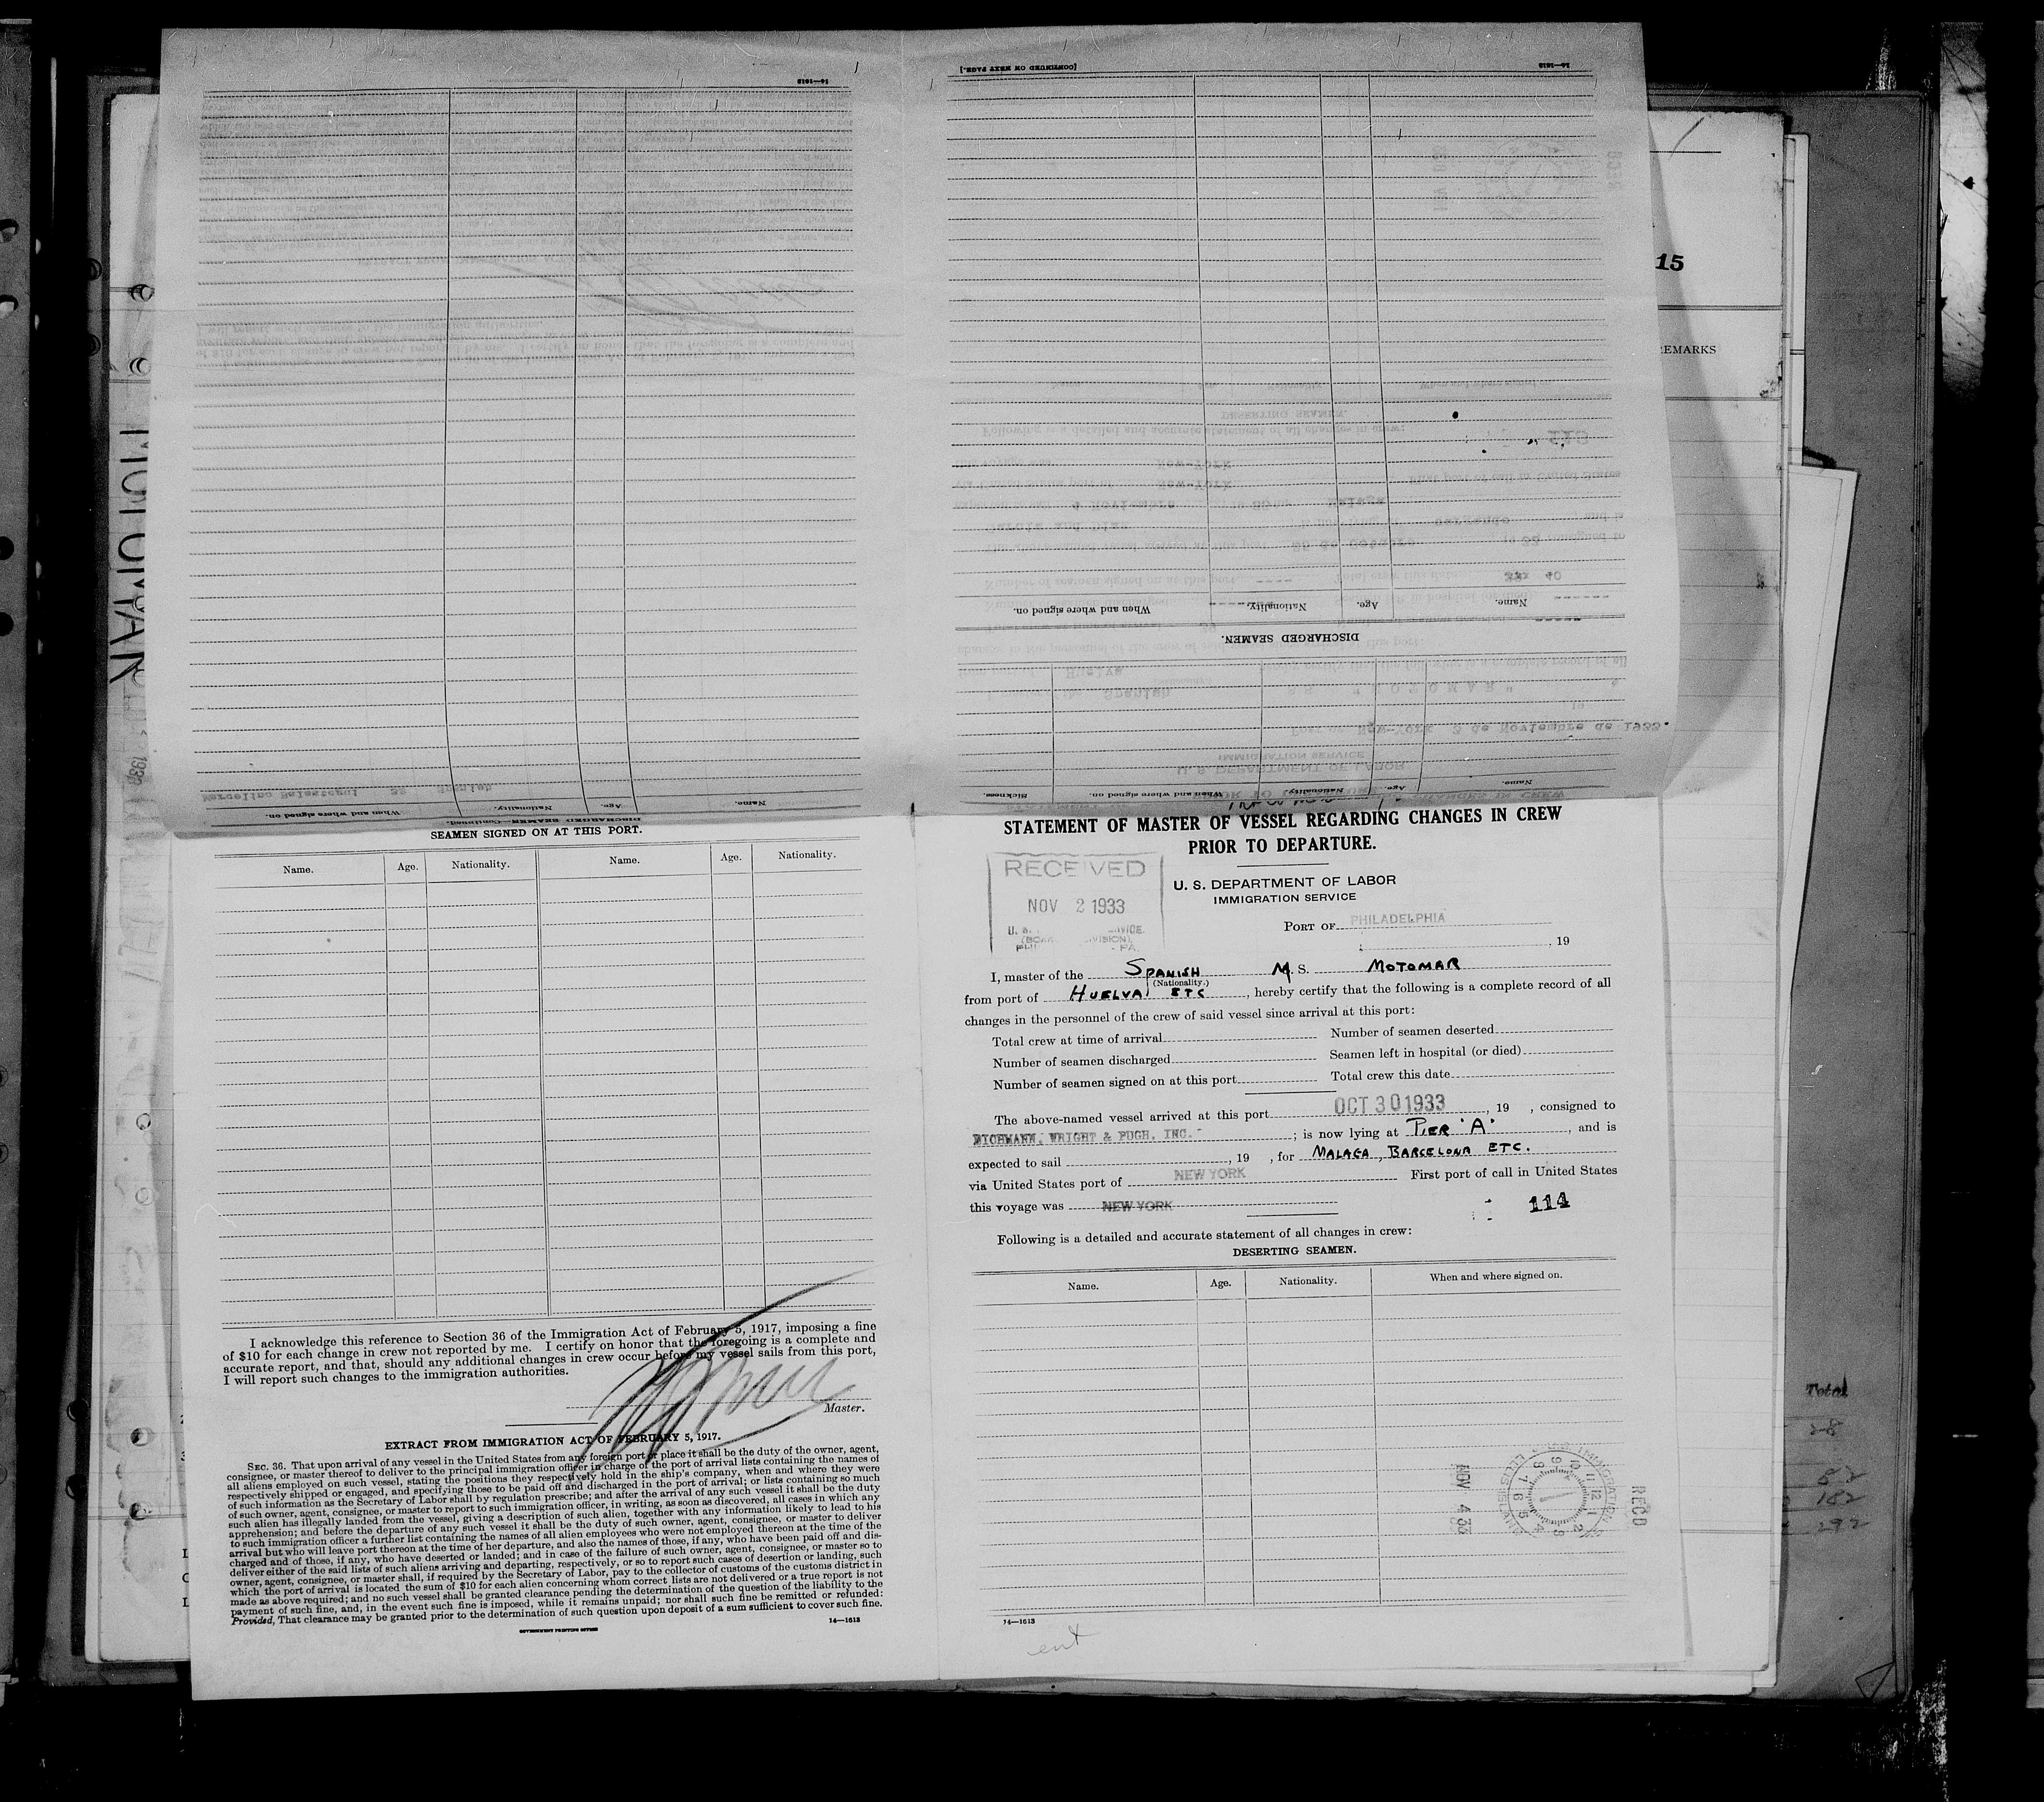 14—1613
[CONTINUED ON NEXT PAGE.]
14—1613
15
REMARKS
When and where signed on.
Nationality.
Age.
Name.
DISCHARGED SEAMEN.
Sickness.
When and where signed on.
Nationality.
Age.
Name.
When and where signed on.
Nationality.
Age.
Name.
DISCHARGED SEAMEN—Continued.
SEAMEN SIGNED ON AT THIS PORT.
Name. Age. Nationality. Name. Age. Nationality.
I acknowledge this reference to Section 36 of the Immigration Act of February 5, 1917, imposing a fine
of $10 for each change in crew not reported by me. I certify on honor that the foregoing is a complete and
accurate report, and that, should any additional changes in crew occur before my vessel sails from this port,
I will report such changes to the immigration authorities.
Master.
EXTRACT FROM IMMIGRATION ACT OF FEBRUARY 5, 1917.
SEC. 36. That upon arrival of any vessel in the United States from any foreign port or place it shall be the duty of the owner, agent,
consignee, or master thereof to deliver to the principal immigration officer in charge of the port of arrival lists containing the names of
all aliens employed on such vessel, stating the positions they respectively hold in the ship's company, when and where they were
respectively shipped or engaged, and specifying those to be paid off and discharged in the port of arrival; or lists containing so much
of such information as the Secretary of Labor shall by regulation prescribe; and after the arrival of any such vessel it shall be the duty
of such owner, agent, consignee, or master to report to such immigration officer, in writing, as soon as discovered, all cases in which any
such alien has illegally landed from the vessel, giving a description of such alien, together with any information likely to lead to his
apprehension; and before the departure of any such vessel it shall be the duty of such owner, agent, consignee, or master to deliver
to such immigration officer a further list containing the names of all alien employees who were not employed thereon at the time of the
arrival but who will leave port thereon at the time of her departure, and also the names of those, if any, who have been paid off and dis-
charged and of those, if any, who have deserted or landed; and in case of the failure of such owner, agent, consignee, or master so to
deliver either of the said lists of such aliens arriving and departing, respectively, or so to report such cases of desertion or landing, such
owner, agent, consignee, or master shall, if required by the Secretary of Labor, pay to the collector of customs of the customs district in
which the port of arrival is located the sum of $10 for each alien concerning whom correct lists are not delivered or a true report is not
made as above required; and no such vessel shall be granted clearance pending the determination of the question of the liability to the
payment of such fine, and, in the event such fine is imposed, while it remains unpaid; nor shall such fine be remitted or refunded:
Provided, That clearance may be granted prior to the determination of such question upon deposit of a sum sufficient to cover such fine.
GOVERNMENT PRINTING OFFICE 14—1613
STATEMENT OF MASTER OF VESSEL REGARDING CHANGES IN CREW
PRIOR TO DEPARTURE.
RECEIVED
NOV 2 1933
U. S. DEPARTMENT OF LABOR
IMMIGRATION SERVICE
PORT OF PHILADELPHIA
, 19
I, master of the SPANISH M. S. MOTOMAR
(Nationality.)
from port of HUELVA ETC, hereby certify that the following is a complete record of all
changes in the personnel of the crew of said vessel since arrival at this port:
Total crew at time of arrival Number of seamen deserted
Number of seamen discharged Seamen left in hospital (or died)
Number of seamen signed on at this port Total crew this date
The above-named vessel arrived at this port OCT 30 1933, 19 , consigned to
RICHMANN, WRIGHT & PUGH, INC. ; is now lying at PIER "A", and is
expected to sail , 19 , for MALAGA, BARCELONA ETC.
via United States port of NEW YORK First port of call in United States
this voyage was NEW YORK
114
Following is a detailed and accurate statement of all changes in crew:
DESERTING SEAMEN.
Name. Age. Nationality. When and where signed on.
REC'D
NOV 4 33
14—1613
ent
Total
28
52
182
292